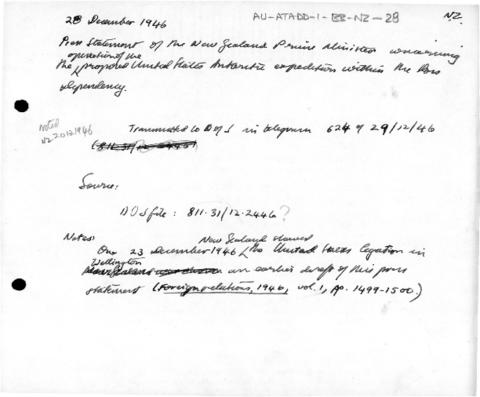 28 December 1946
AU-ATADD-1-BB-NZ-28
NZ
Press Statement of the New Zealand Prime Minister concerning
operation of the
the proposed United States Antarctic expedition within the Ross
Dependency.
Noted
NZ20121946
Transmitted to DofS in telegram 624 of 29/12/46
(811.31/12-2446)
Source:
DOS file: 811.31/12.2446?
Notes:
New Zealand showed
On 23 December 1946 the United States legation in
Wellington
an earlier draft of this press
statement (Foreign relations, 1946, vol. 1, pp. 1499-1500.)